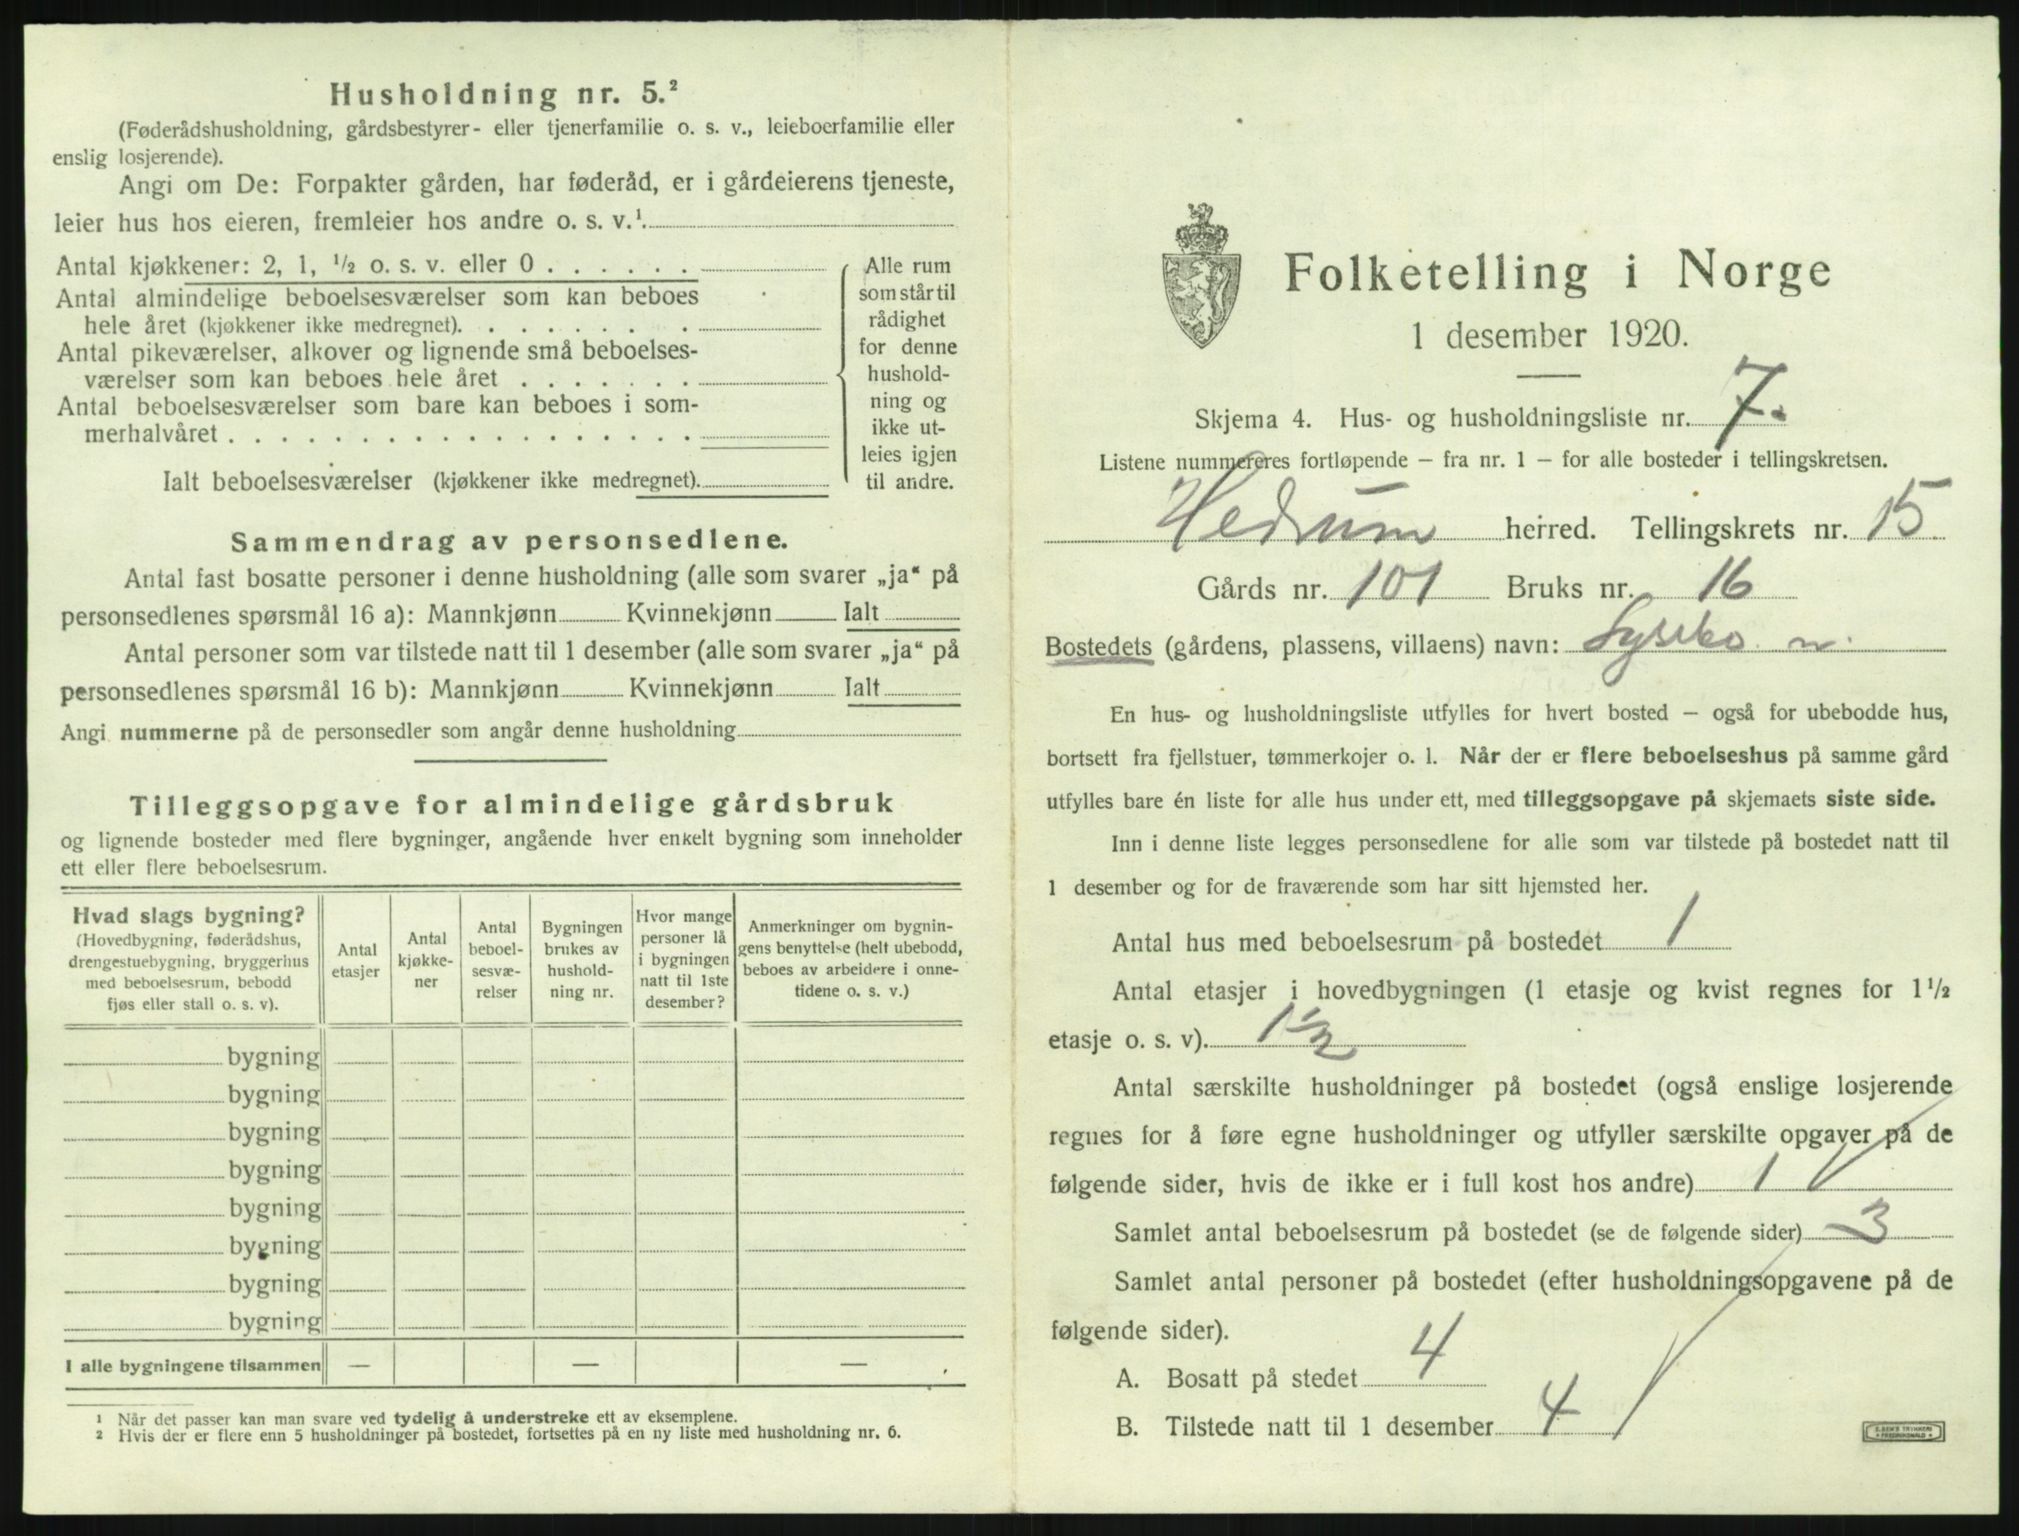 Husholdning nr. 5.²
(Føderådshusholdning, gårdsbestyrer- eller tjenerfamilie o. s. v., leieboerfamilie eller
enslig losjerende).
Angi om De: Forpakter gården, har føderåd, er i gårdeierens tjeneste,
leier hus hos eieren, fremleier hos andre o. s. v.¹
Antal kjøkkener: 2, 1, ½ o. s. v. eller 0 . . . . . .
Antal almindelige beboelsesværelser som kan beboes
hele året (kjøkkener ikke medregnet). . . . . . . . .
Antal pikeværelser, alkover og lignende små beboelses-
værelser som kan beboes hele året . . . . . . .
Antal beboelsesværelser som bare kan beboes i som-
merhalvåret . . . . . . . . . . . . . . . . . .
Ialt beboelsesværelser (kjøkkener ikke medregnet).
Alle rum
som står til
rådighet
for denne
hushold-
ning og
ikke ut-
leies igjen
til andre.
Sammendrag av personsedlene.
Antal fast bosatte personer i denne husholdning (alle som svarer „ja“ på
personsedlenes spørsmål 16 a): Mannkjønn Kvinnekjønn Ialt
Antal personer som var tilstede natt til 1 desember (alle som svarer „ja“ på
personsedlenes spørsmål 16 b): Mannkjønn Kvinnekjønn Ialt
Angi nummerne på de personsedler som angår denne husholdning
Tilleggsopgave for almindelige gårdsbruk
og lignende bosteder med flere bygninger, angående hver enkelt bygning som inneholder
ett eller flere beboelsesrum.
Hvad slags bygning?
(Hovedbygning, føderådshus,
drengestuebygning, bryggerhus
med beboelsesrum, bebodd
fjøs eller stall o. s. v).
Antal
etasjer
Antal
kjøkke-
ner
Antal
beboel-
sesvæ-
relser
Bygningen
brukes av
hushold-
ning nr.
Hvor mange
personer lå
i bygningen
natt til 1ste
desember?
Anmerkninger om bygnin-
gens benyttelse (helt ubebodd,
beboes av arbeidere i onne-
tidene o. s. v.)
bygning
bygning
bygning
bygning
bygning
bygning
bygning
bygning
I alle bygningene tilsammen — — —
¹ Når det passer kan man svare ved tydelig å understreke ett av eksemplene.
² Hvis der er flere enn 5 husholdninger på bostedet, fortsettes på en ny liste med husholdning nr. 6.
Folketelling i Norge
1 desember 1920.
Skjema 4. Hus- og husholdningsliste nr. 7.
Listene nummereres fortløpende – fra nr. 1 – for alle bosteder i tellingskretsen.
Hedrum herred. Tellingskrets nr. 15
Gårds nr. 101 Bruks nr. 16
Bostedets (gårdens, plassens, villaens) navn:
En hus- og husholdningsliste utfylles for hvert bosted – også for ubebodde hus,
bortsett fra fjellstuer, tømmerkojer o. l. Når der er flere beboelseshus på samme gård
utfylles bare én liste for alle hus under ett, med tilleggsopgave på skjemaets siste side.
Inn i denne liste legges personsedlene for alle som var tilstede på bostedet natt til
1 desember og for de fraværende som har sitt hjemsted her.
Antal hus med beboelsesrum på bostedet 1
Antal etasjer i hovedbygningen (1 etasje og kvist regnes for 1½
etasje o. s. v). 1½
Antal særskilte husholdninger på bostedet (også enslige losjerende
regnes for å føre egne husholdninger og utfyller særskilte opgaver på de
følgende sider, hvis de ikke er i full kost hos andre) 1
Samlet antal beboelsesrum på bostedet (se de følgende sider) 3
Samlet antal personer på bostedet (efter husholdningsopgavene på de
følgende sider).
A. Bosatt på stedet 4
B. Tilstede natt til 1 desember 4